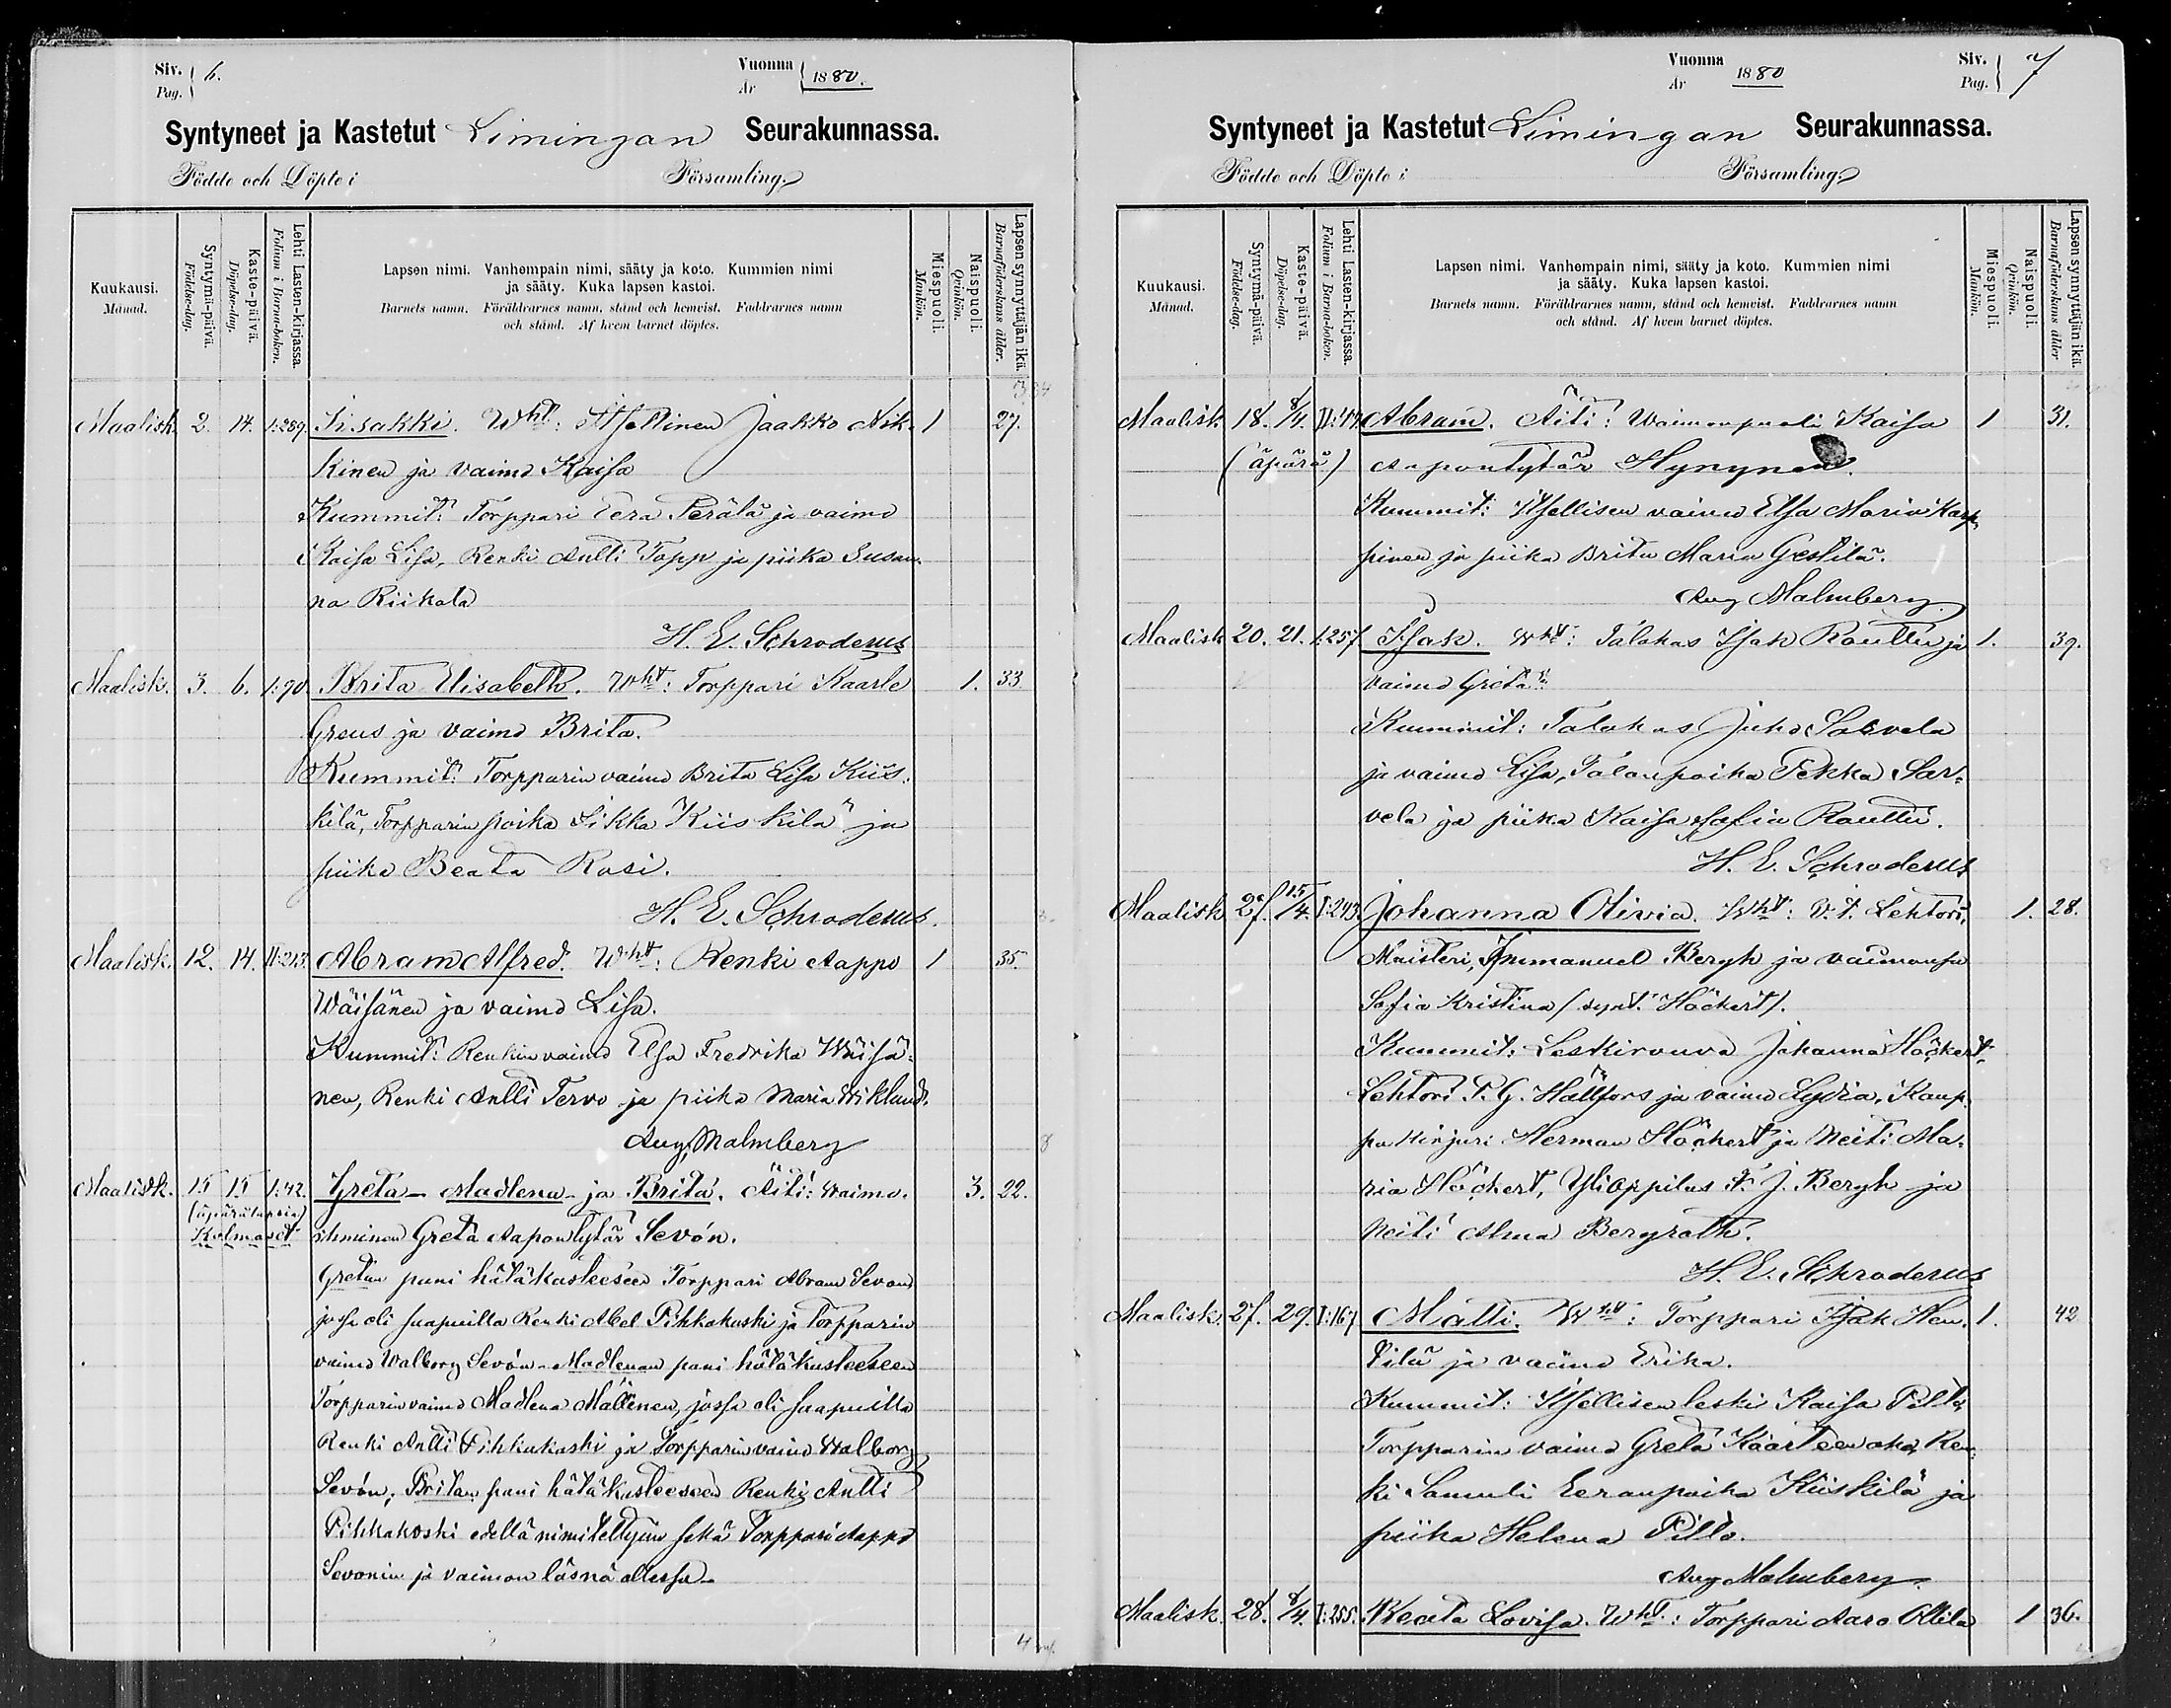 Siv. 6.
Pag.
Vuonna 1880.
År
Syntyneet ja Kastetut Limingan Seurakunnassa.
Födde och Döpte i Församling.
Kuukausi.
Månad.
Syntymä-päivä.
Födelse-dag.
Kaste-päivä.
Döpelse-dag.
Lehti Lasten-kirjassa.
Folium i Barna-boken.
Lapsen nimi. Vanhempain nimi, sääty ja koto. Kummien nimi
ja sääty. Kuka lapsen kastoi.
Barnets namn. Föräldrarnes namn, stånd och hemvist. Faddrarnes namn
och stånd. Af hvem barnet döptes.
Miespuoli.
Mankön.
Naispuoli.
Qvinkön.
Lapsen synnyttäjän ikä.
Barnaföderskans ålder.
Maalisk. 2. 14. I:289. Iisakki. Wht: Itsellinen Jaakko Nik- 1 27.
kinen ja vaimo Kaisa
Kummit: Torppari Eera Perälä ja vaimo
Kaisa Lisa, Renki Antti Topp ja piika Susan-
na Riikola
H. E. Schroderus
Maalisk. 3. 6. I:90 Brita Elisabeth. Wht: Torppari Kaarle 1. 33
Greus ja vaimo Brita.
Kummit: Torpparin vaimo Brita Lisa Kiis-
kilä, Torpparin poika Iikka Kiiskilä ja
piika Beata Rasi.
H. E. Schroderus.
Maalisk. 12. 14. II:213. Abram Alfred. Wht: Renki Aappo 1 35.
Wäisänen ja vaimo Lisa.
Kummit: Renkin vaimo Elsa Fredrika Wäisä-
nen, Renki Antti Tervo ja piika Maria Wiklund.
Aug. Malmberg
Maalisk. 15 15 I:42. Greta - Madlena - ja Brita. Äiti: Waimo- 3. 22.
(äpärälapsia)
Kolmoset
ihminen Greta Aapontytär Sevón.
Gretan pani hätäkasteeseen Torppari Abram Sevon
jossa oli saapuilla Renki Abel Pihkakoski ja Torpparin
vaimo Walborg Sevón - Madlenan pani hätäkasteeseen
Torpparin vaimo Madlena Mällinen, jossa oli saapuilla
Renki Antti Pihkakoski ja Torpparin vaimo Walborg
Sevón; Britan pani hätäkasteeseen Renki Antti
Pihkakoski edellä nimitettyin sekä Torppari Aappo
Sevonin ja vaimon läsnä ollessa -
Vuonna 1880
År
Siv. 7
Pag.
Syntyneet ja Kastetut Limingan Seurakunnassa.
Födde och Döpte i Församling.
Kuukausi.
Månad.
Syntymä-päivä.
Födelse-dag.
Kaste-päivä.
Döpelse-dag.
Lehti Lasten-kirjassa.
Folium i Barna-boken.
Lapsen nimi. Vanhempain nimi, sääty ja koto. Kummien nimi
ja sääty. Kuka lapsen kastoi.
Barnets namn. Föräldrarnes namn, stånd och hemvist. Faddrarnes namn
och stånd. Af hvem barnet döptes.
Miespuoli.
Mankön.
Naispuoli.
Qvinkön.
Lapsen synnyttäjän ikä.
Barnaföderskans ålder
Maalisk 18. 8/4. Abram. Äiti: Waimonpuoli Kaisa 1 31.
(äpärä) Aapontytär Hynynen.
Kummit: Itsellisen vaimo Elsa Maria Karp-
pinen ja piika Brita Maria Gestilä.
Aug Malmberg
Maalisk 20. 21. I:257. Isak. Wht: Talokas Isak Rauttu ja 1. 39.
vaimo Greta.
Kummit: Talokas Juho Sarvela
ja vaimo Lisa, Talonpoika Pekka Sar-
vela ja piika Kaisa Sofia Rauttu.
H. E. Schroderus
Maalisk 27. 15/4. I:243. Johanna Olivia. Wht: V. t. Lehtori, 1. 28.
Maisteri, Immanuel Bergh ja vaimonsa
Sofia Kristina (synt. Höckert).
Kummit: Leskirouva Johanna Höckert,
Lehtori P. G. Hällfors ja vaimo Lydia, Kaup-
pakirjuri Herman Höckert ja Neiti Ma-
ria Höckert, Ylioppilas F. J. Bergh ja
Neiti Alma Bergroth.
H. E. Schroderus
Maalisk. 27. 29. I:167 Matti. Wht: Torppari Isak Hen- 1. 42
tilä ja vaimo Erika.
Kummit: Itsellisen leski Kaisa Pillo,
Torpparin vaimo Greta Kaarteenaho, Ren-
ki Samuli Eeranpoika Kiiskilä ja
piika Helena Pillo.
Aug Malmberg.
Maalisk. 28. 8/4. I:255. Beata Lovisa. Wht.: Torppari Aaro Ollila 1 36.